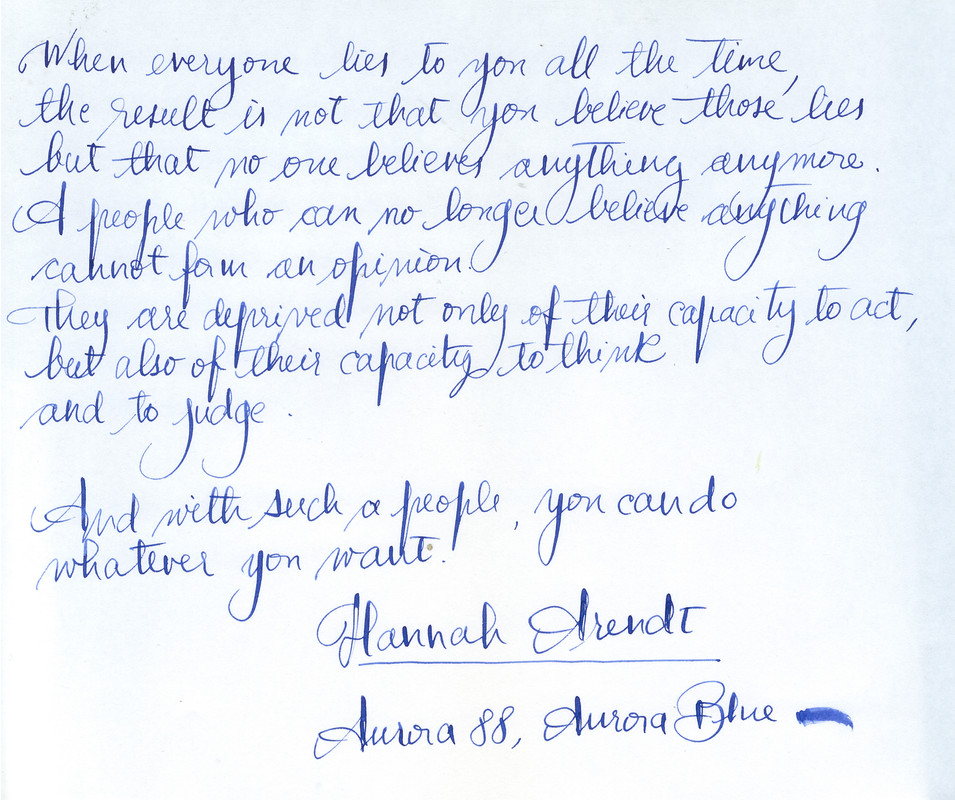 When everyone lies to you all the time,
the result is not that you believe those lies
but that no one believes anything anymore.
A people who can no longer believe anything
cannot form an opinion.
They are deprived not only of their capacity to act,
but also of their capacity to think
and to judge.
And with such a people, you can do
whatever you want.
Hannah Arendt
Aurora 88, Aurora Blue